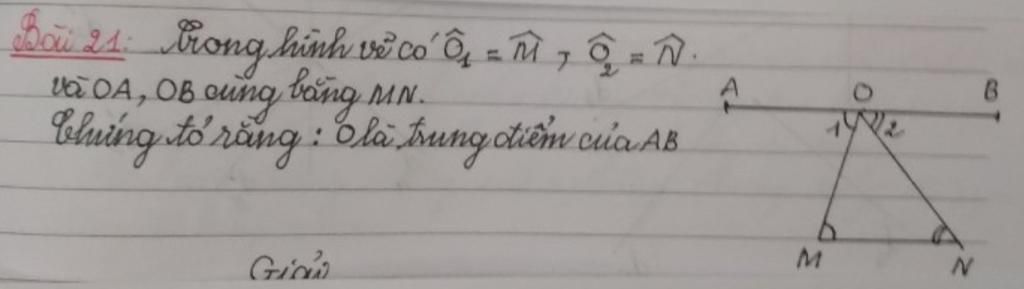 Bài 21: Trong hình vẽ có Ô₁ = M̂, Ô₂ = N̂.
và OA, OB cùng bằng MN.
Chứng tỏ rằng: O là trung điểm của AB
A O B
1 2
M N
Giải